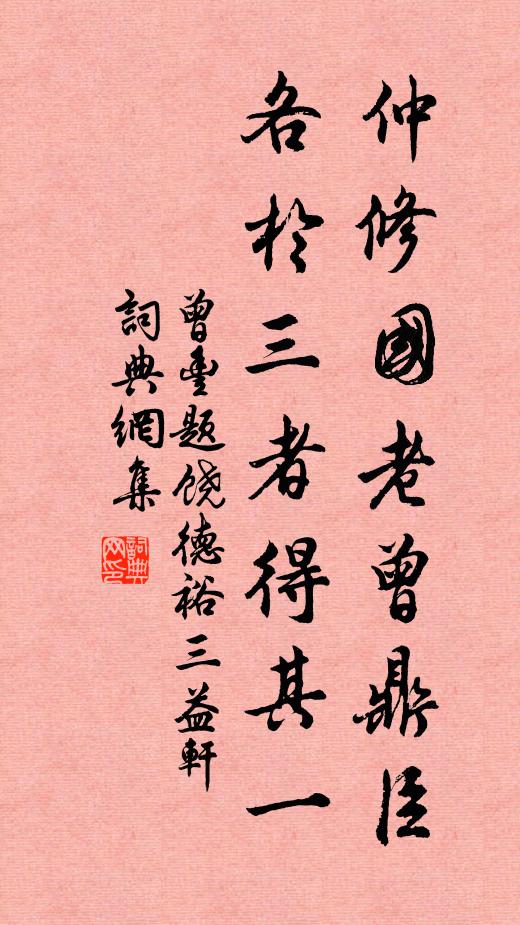 仲修國老曾鼎臣
各於三者得其一
曾豐題饶德裕三益軒
詞典網集
詞典网印